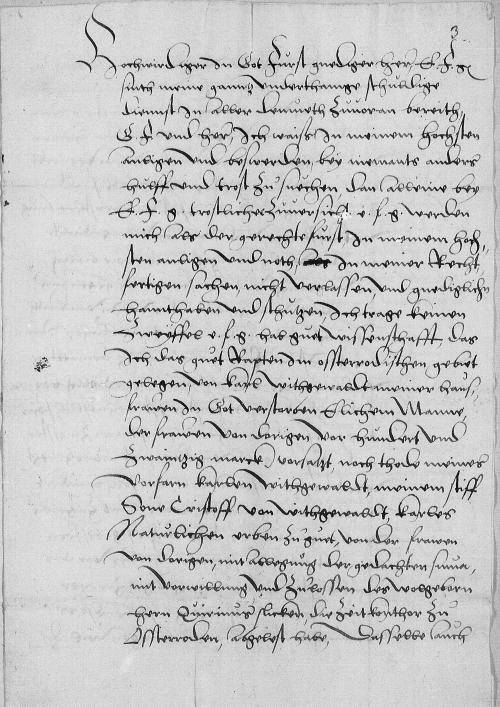 3
Hochwirdiger In Got Furst gnediger her, E. F. g.
seith meine gantz underthanige schuldige
dienst In aller demuth zuuoran bereith,
G F und her, Ich waiss In meinem hochsten
anligen und beswerden, bey niemants anders
hulff und trost zu suechen dan alleine bey
E. F. g. trostlicher zuuersicht e. f. g. werden
mich als der gerechte furst In meinem hoch
sten anligen und noth, In meiner Recht
fertigen sachen, nicht verlassen, und gnediglich
hannthaben und schutzen, Ich trage keinen
Zweyffel e. f. g. hab guet wissenschafft, das
Ich das guet Rapten Im ossterrodischen gebiet
gelegen, von Karl Withgewaldt meiner haus,
frawen In Got verstorben Elichem Manne,
der frawen von dorigen vor hundert und
Zwaintzig marck vorsatzt, noch thode meines
vorfarn Karlen Withgewaldt, meinem stiff
Sone Cristoff von Withgewaldt, Karles
Naturlichen erben zu guet, von der frawen
von dorigen, mit ablegung der gedachten summa,
mit vorwillung und zulossen des wolgeborn
hern Quirinus slicken, die Zeit kompthor zu
Ossterroden, abgelost habe, Dasselbe auch